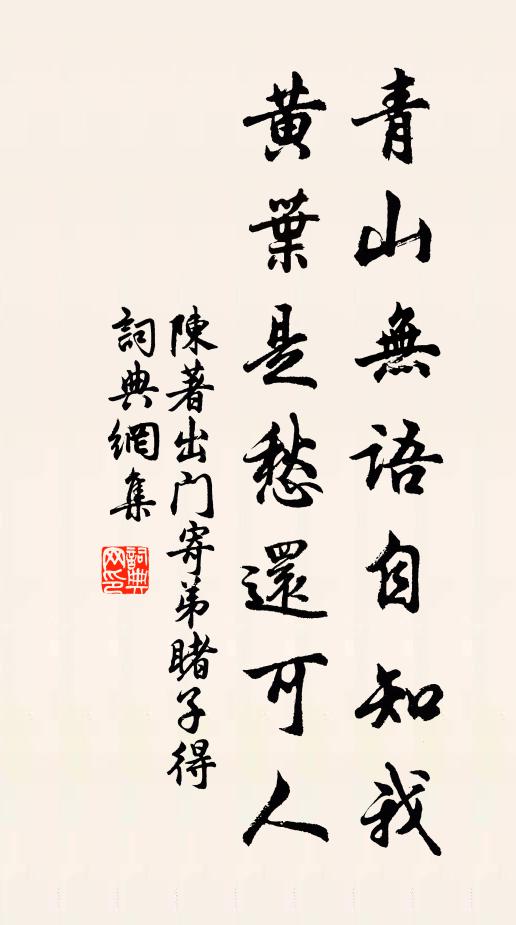 青山無語自知我
黃葉是愁還可人
陳著出門寄弟睹子得
詞典網集
詞典網印